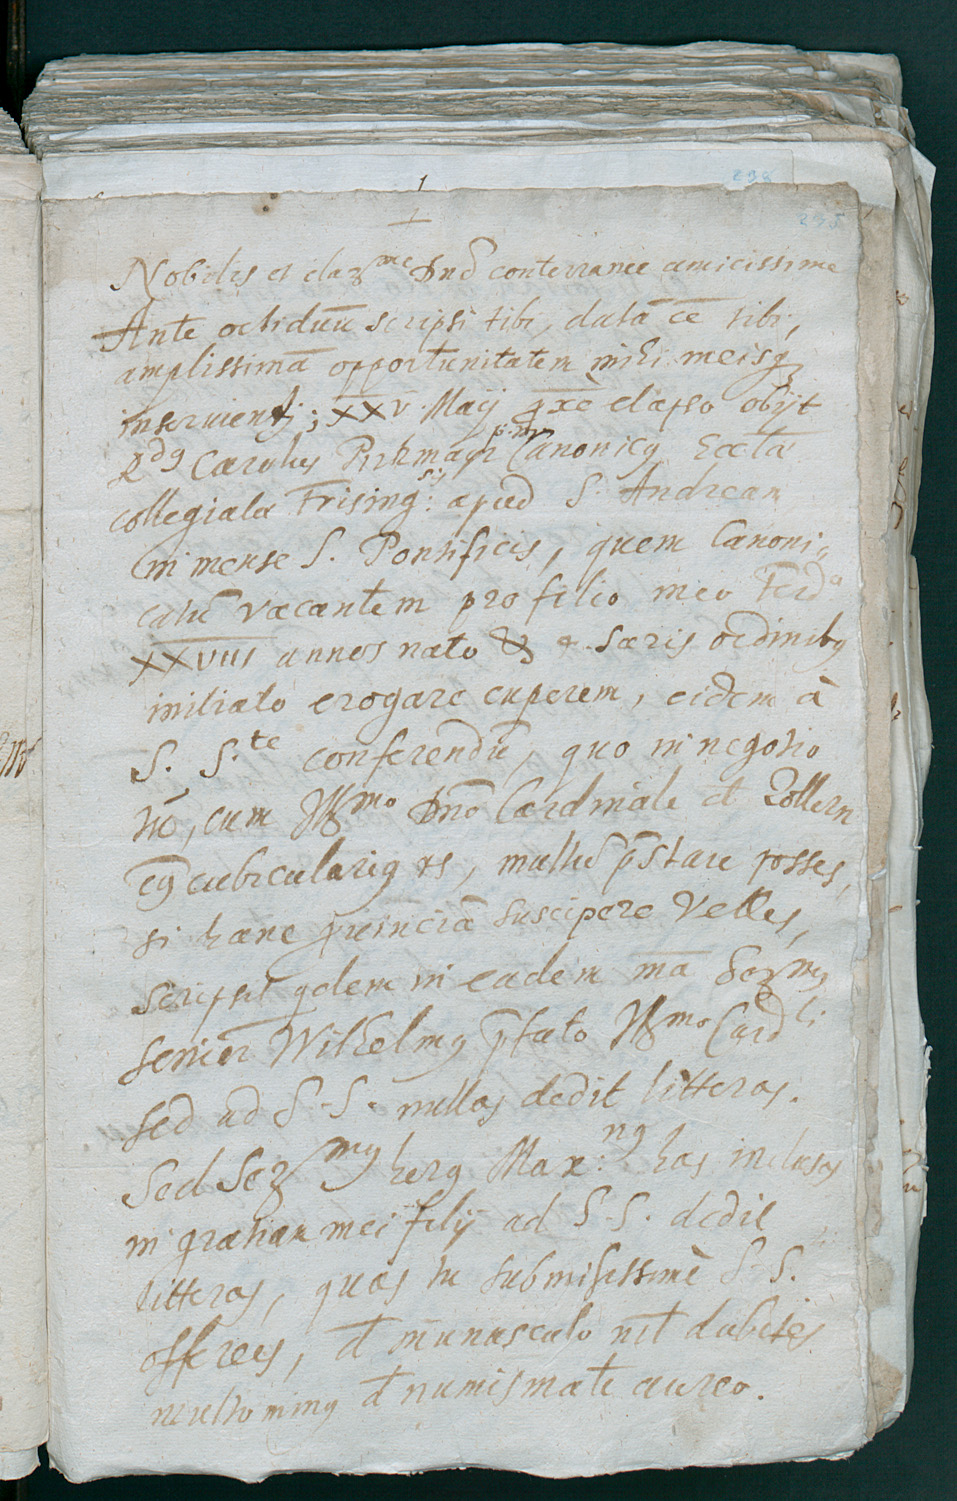 1
298
295
Nobilis et claz^me Dnē conterranee amicissime
Ante octiduū scripsi tibi, datā eē tibi,
amplissimā opportunitatem mihi meisq
inserviendi; XXV Maij pxē elapso obijt
Rdg Carolus Canonicg Eccla
collegiata Frising: apud S. Andream
in mense S. Pontificis, quem Canoni„
catū vacantem pro filio meo Ferd^o
XXVIII annos nato & sacris ordinibg
initiato erogare cuperem, eidem à
S. S.^te conferendū, quo in negotio
tu, cum Ill^mo Dnō Cardinale d Zollern
cubicularig es, multū pstare posses,
si hanc puinciā suscipere velles,
scripsit qdem in eadem mā Sez^mg
senior Wilhelmg pfato Ill^mo Card^li
sed ad S. S. nullas dedit litteras.
Sed Sez^mg herg Max:^ng has inclusas
in gratiam mei filij ad S. S. dedit
litteras, quas tu submisissimè S. S.
offeres, d munusculo nil dubites
multo ming d numismate aureo.